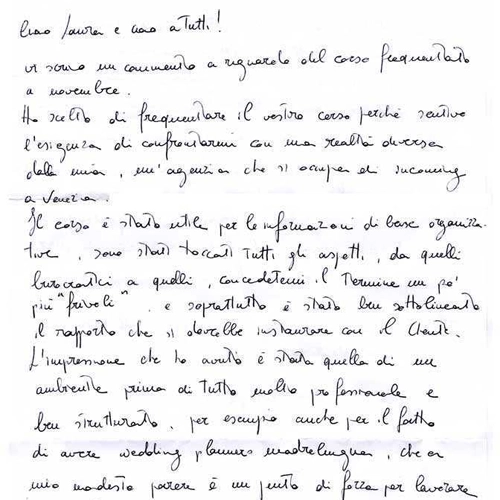 Ciao Laura e ciao a Tutti!
vi scrivo un commento a riguardo del corso frequentato
a novembre.
Ho scelto di frequentare il vostro corso perché sentivo
l'esigenza di confrontarmi con una realtà diversa
dalla mia, un'agenzia che si occupa di incoming
a Venezia.
Il corso è stato utile per le informazioni di base organizza-
tive, sono stati toccati tutti gli aspetti, da quelli
burocratici a quelli, concedetemi il termine un po'
più "frivoli", e soprattutto è stato ben sottolineato
il rapporto che si dovrebbe instaurare con il cliente.
L'impressione che ho avuto è stata quella di un
ambiente prima di tutto molto professionale e
ben strutturato, per esempio anche per il fatto
di avere wedding planners madrelingua, che a
mio modesto parere è un punto di forza per lavorare